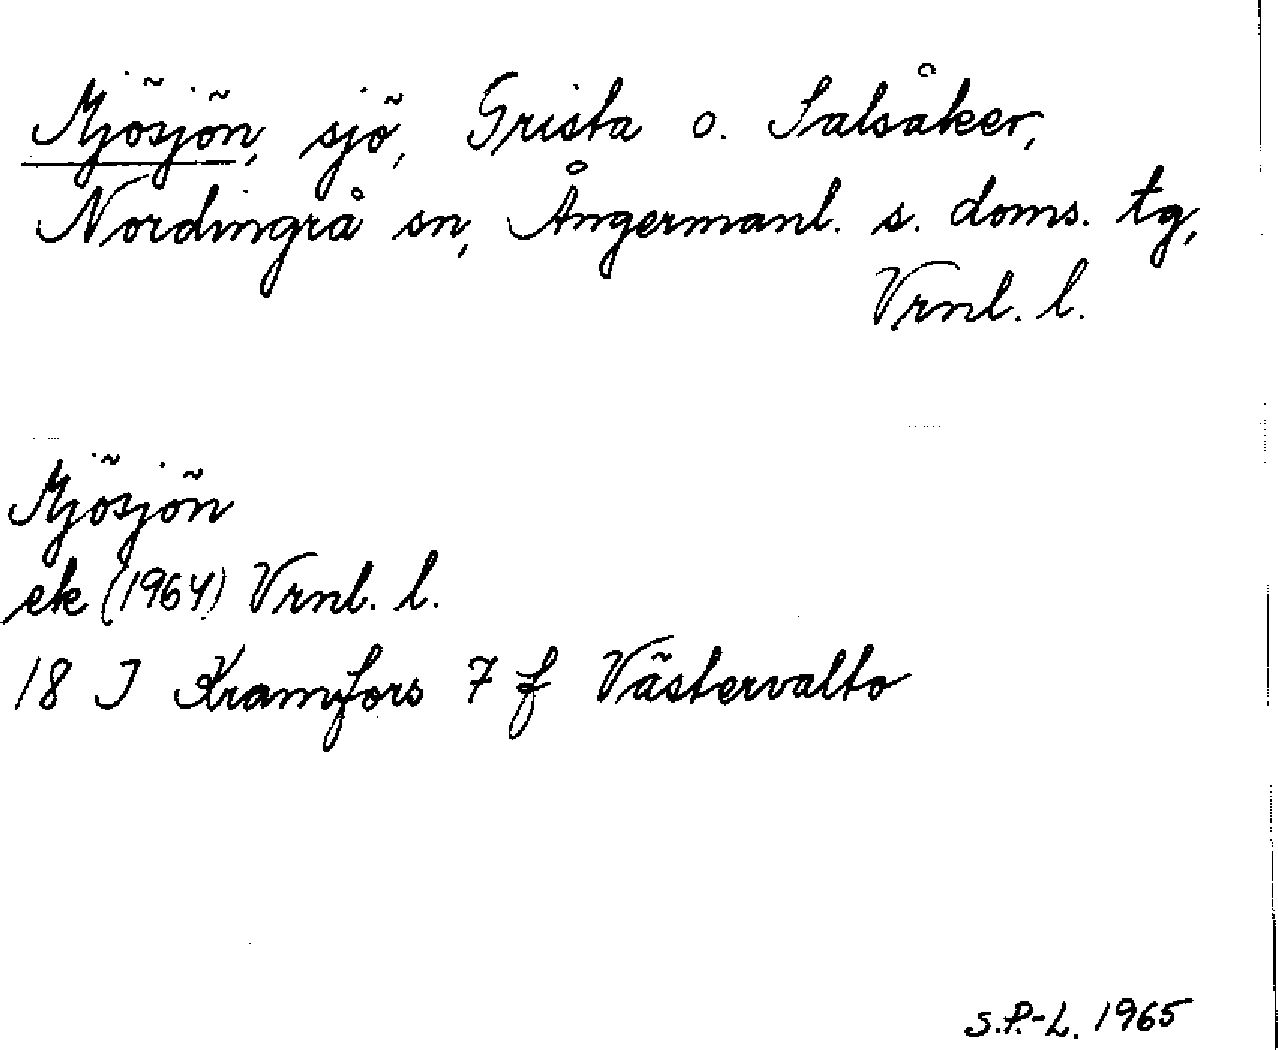 Mjösjön, sjö, Grista o. Salsåker,
Nordingrå sn, Ångermanl. s. doms. tg,
Vrnl. l.
Mjösjön
ek (1964) Vrnl. l.
18 J Kramfors 7 f Västervalto
S.P.-L. 1965